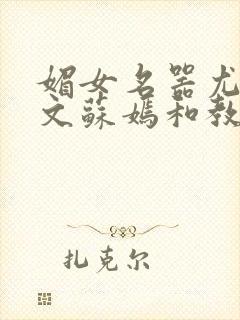 媚女名器尤
文蘇媽和教
扎克尔